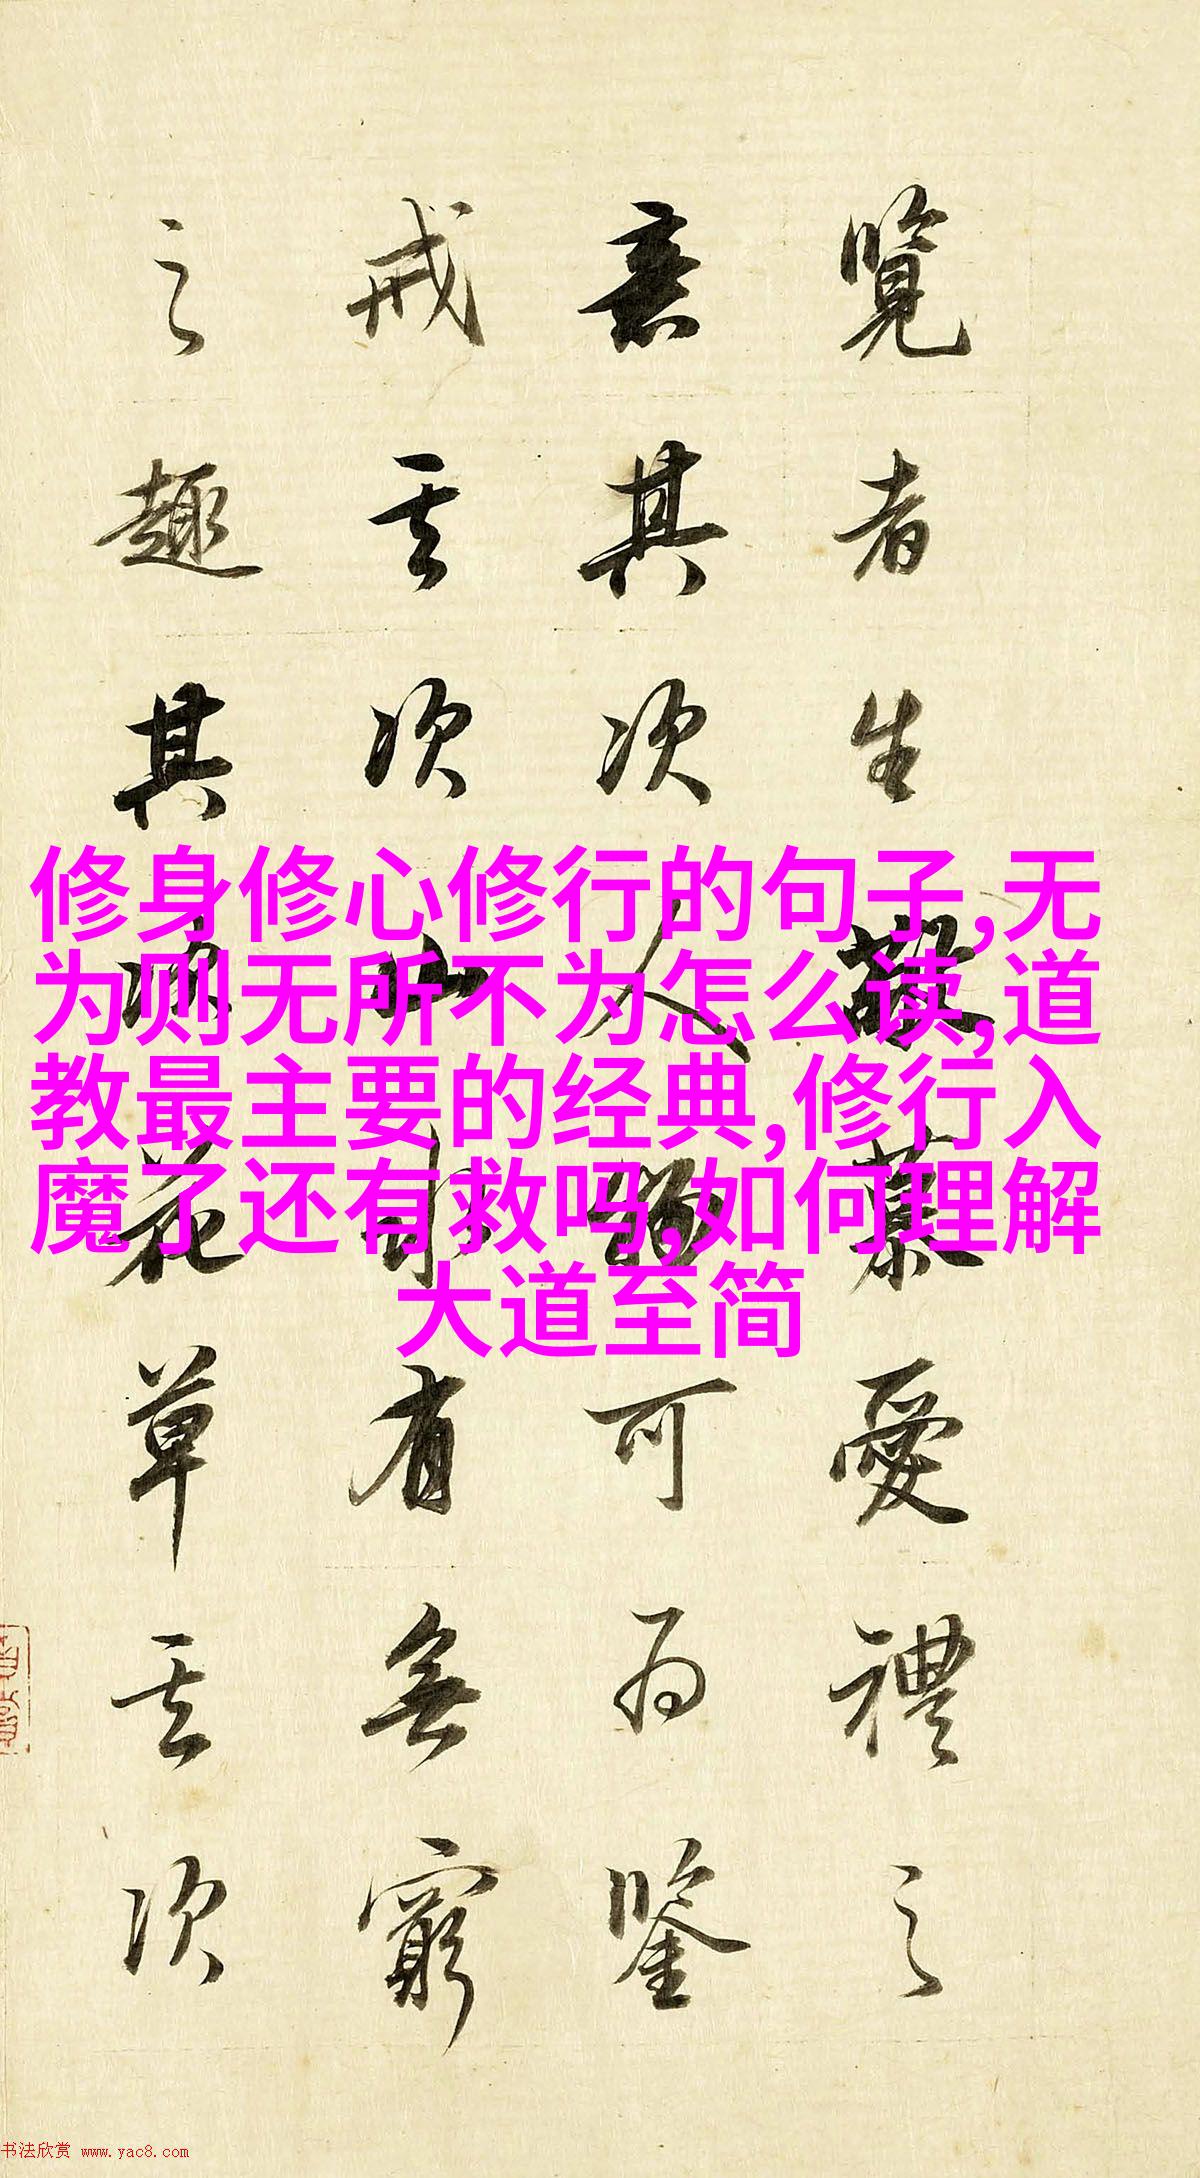 覽者生敬慕愛禮之
意其次人物可為鑒
戒其次山水有無窮
之趣其次花草其次
修身修心修行的句子,无
为则无所不为怎么读,道
教最主要的经典,修行入
魔了还有救吗,如何理解
大道至简
书法欣赏 www.yac8.com